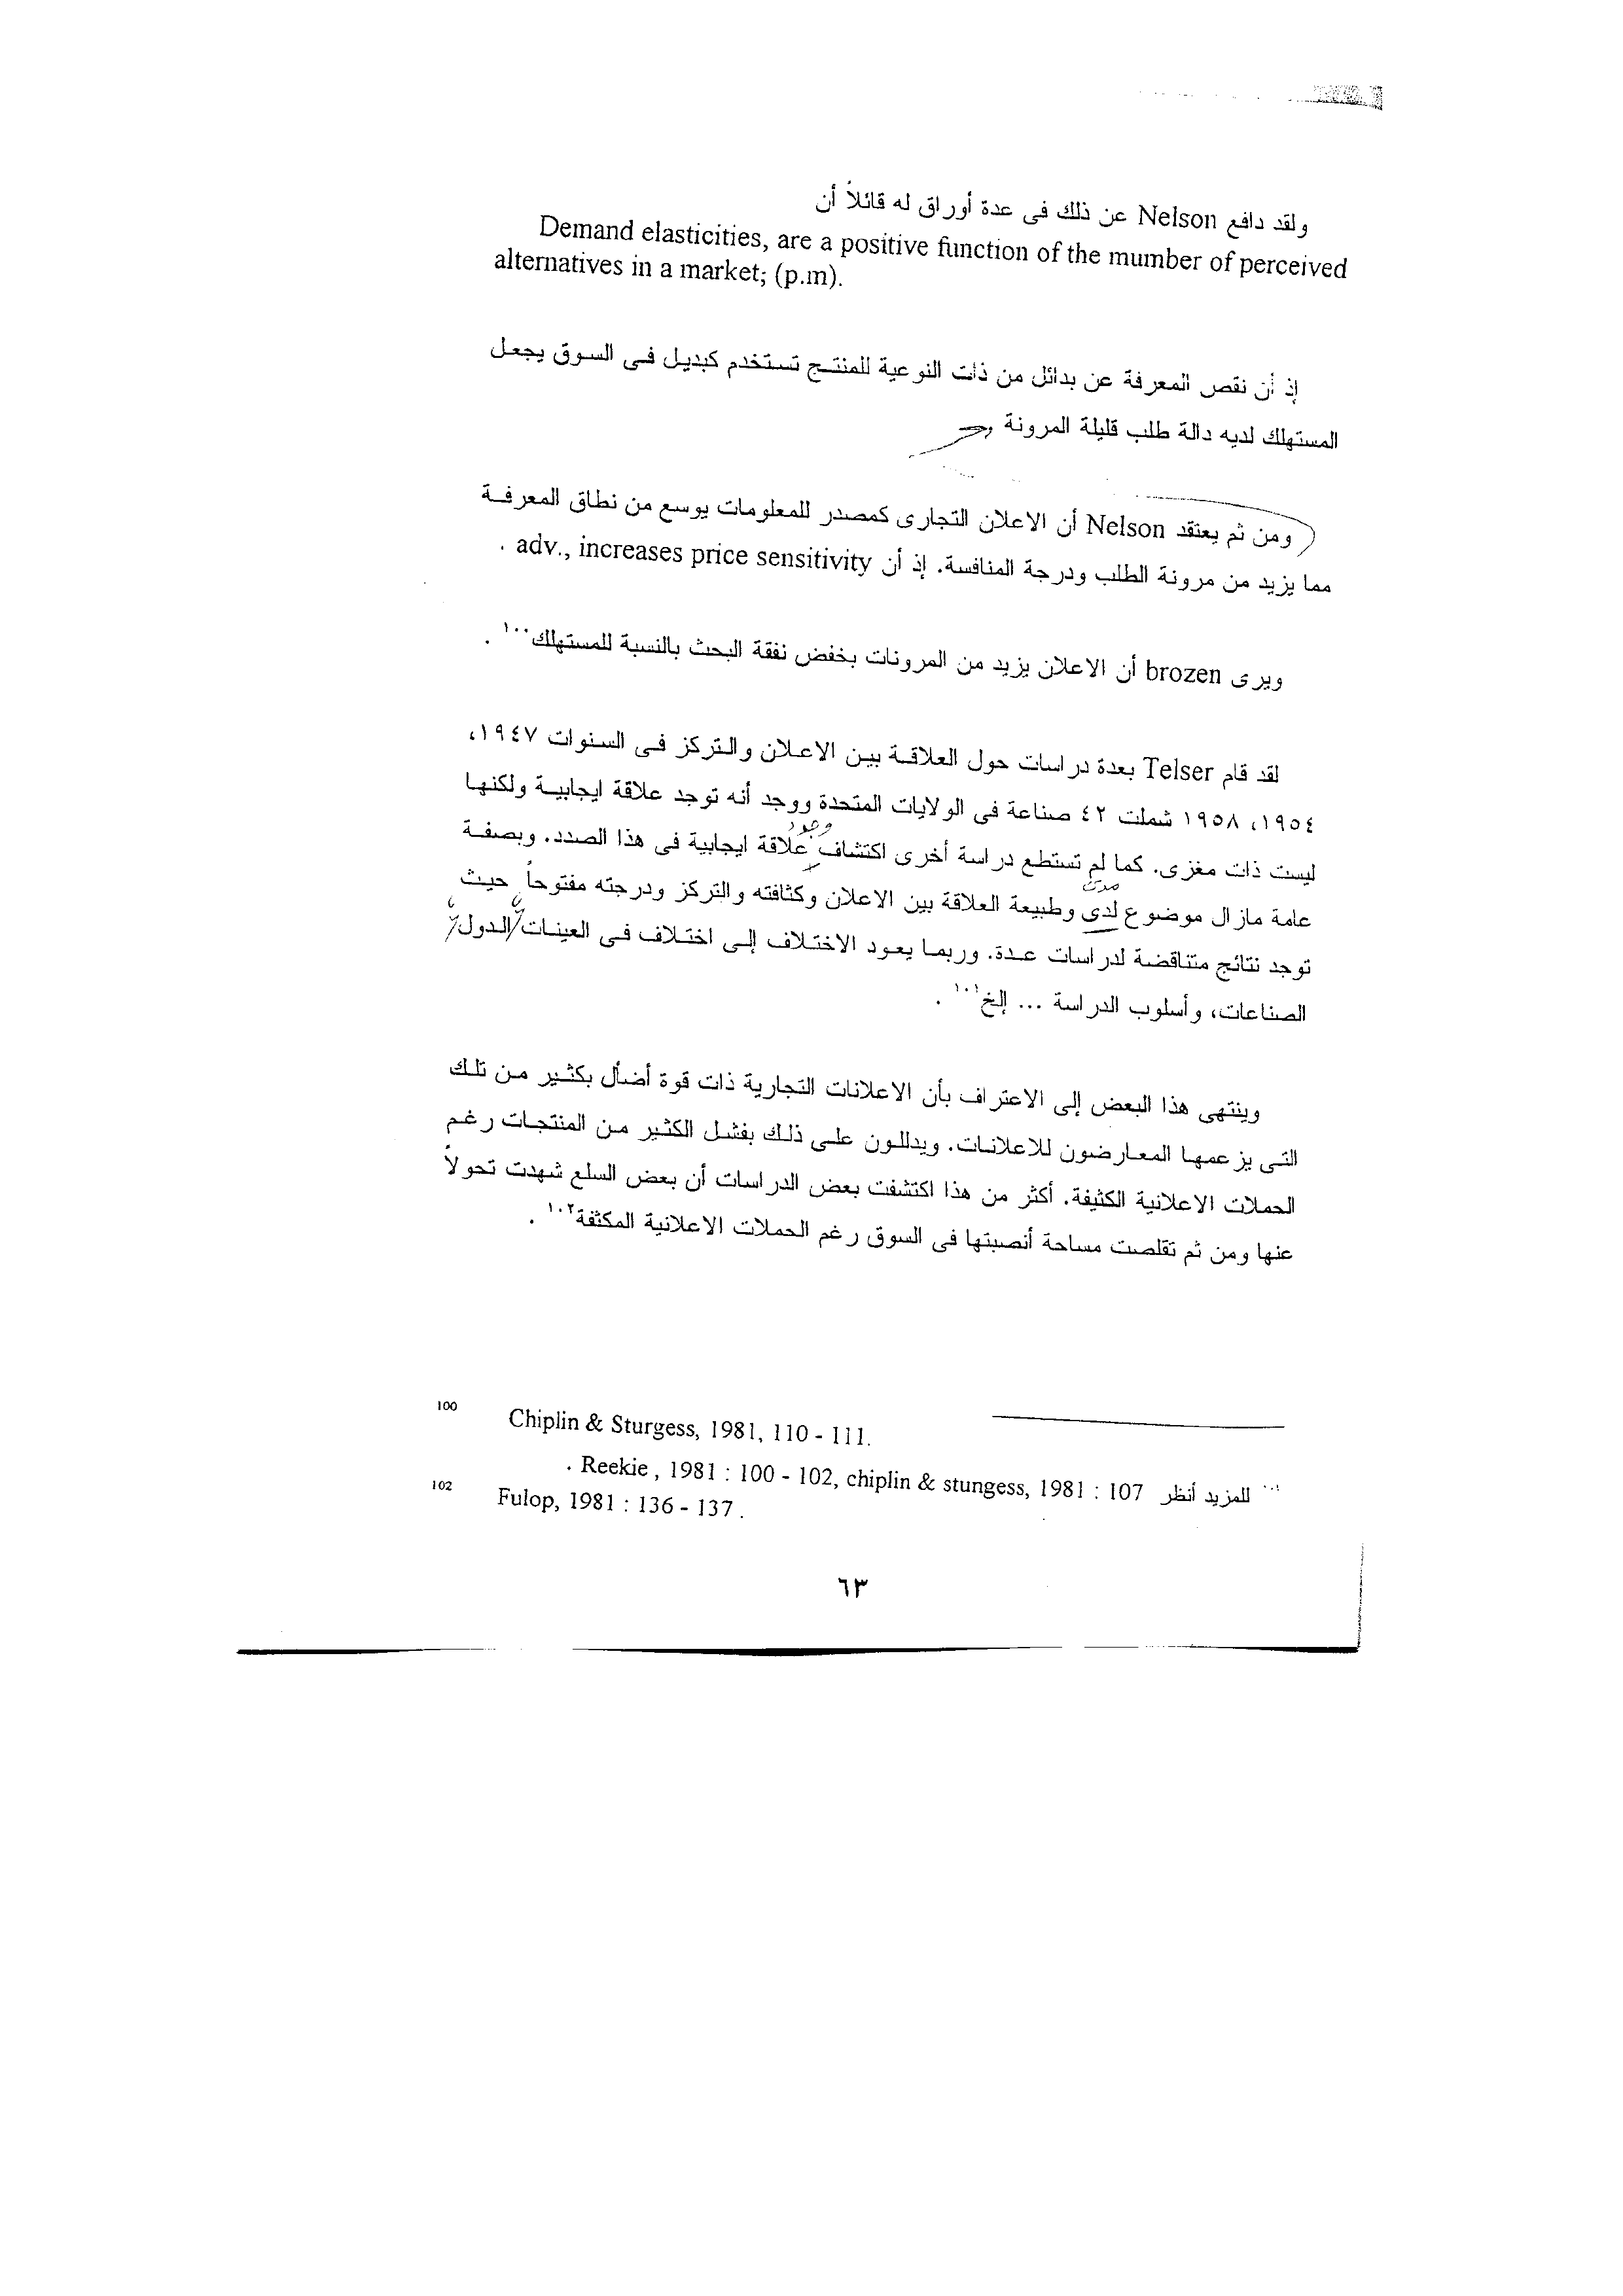 ولقد دافع Nelson عن ذلك فى عدة أوراق له قائلاً أن
Demand elasticities, are a positive function of the mumber of perceived
alternatives in a market; (p.m).
إذ أن نقص المعرفة عن بدائل من ذات النوعية للمنتج تستخدم كبديل فى السوق يجعل
المستهلك لديه دالة طلب قليلة المرونة
ومن ثم يعتقد Nelson أن الاعلان التجارى كمصدر للمعلومات يوسع من نطاق المعرفة
مما يزيد من مرونة الطلب ودرجة المنافسة. إذ أن adv., increases price sensitivity .
ويرى brozen أن الاعلان يزيد من المرونات بخفض نفقة البحث بالنسبة للمستهلك١٠٠ .
لقد قام Telser بعدة دراسات حول العلاقة بين الاعلان والتركز فى السنوات ١٩٤٧،
١٩٥٤، ١٩٥٨ شملت ٤٢ صناعة فى الولايات المتحدة ووجد أنه توجد علاقة ايجابية ولكنها
وجود
ليست ذات مغزى. كما لم تستطع دراسة أخرى اكتشاف علاقة ايجابية فى هذا الصدد. وبصفة
عامة مازال موضوع لدى وطبيعة العلاقة بين الاعلان وكثافته والتركز ودرجته مفتوحاً حيث
توجد نتائج متناقضة لدراسات عدة. وربما يعود الاختلاف إلى اختلاف فى العينات/الدول/
الصناعات، وأسلوب الدراسة ... إلخ١٠١ .
وينتهى هذا البعض إلى الاعتراف بأن الاعلانات التجارية ذات قوة أضأل بكثير من تلك
التى يزعمها المعارضون للاعلانات. ويدللون على ذلك بفشل الكثير من المنتجات رغم
الحملات الاعلانية الكثيفة. أكثر من هذا اكتشفت بعض الدراسات أن بعض السلع شهدت تحولاً
عنها ومن ثم تقلصت مساحة أنصبتها فى السوق رغم الحملات الاعلانية المكثفة١٠٢ .
100 Chiplin & Sturgess, 1981, 110 - 111.
١٠١ للمزيد أنظر Reekie , 1981 : 100 - 102, chiplin & stungess, 1981 : 107 .
102 Fulop, 1981 : 136 - 137 .
٦٣